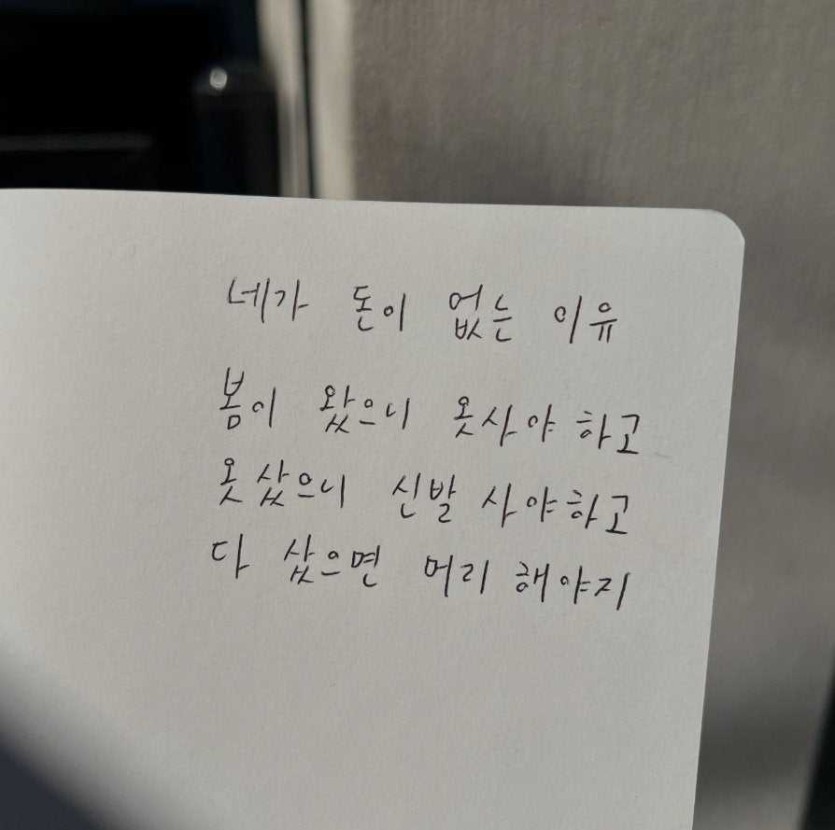 네가 돈이 없는 이유
봄이 왔으니 옷사야 하고
옷 샀으니 신발 사야하고
다 샀으면 머리 해야지